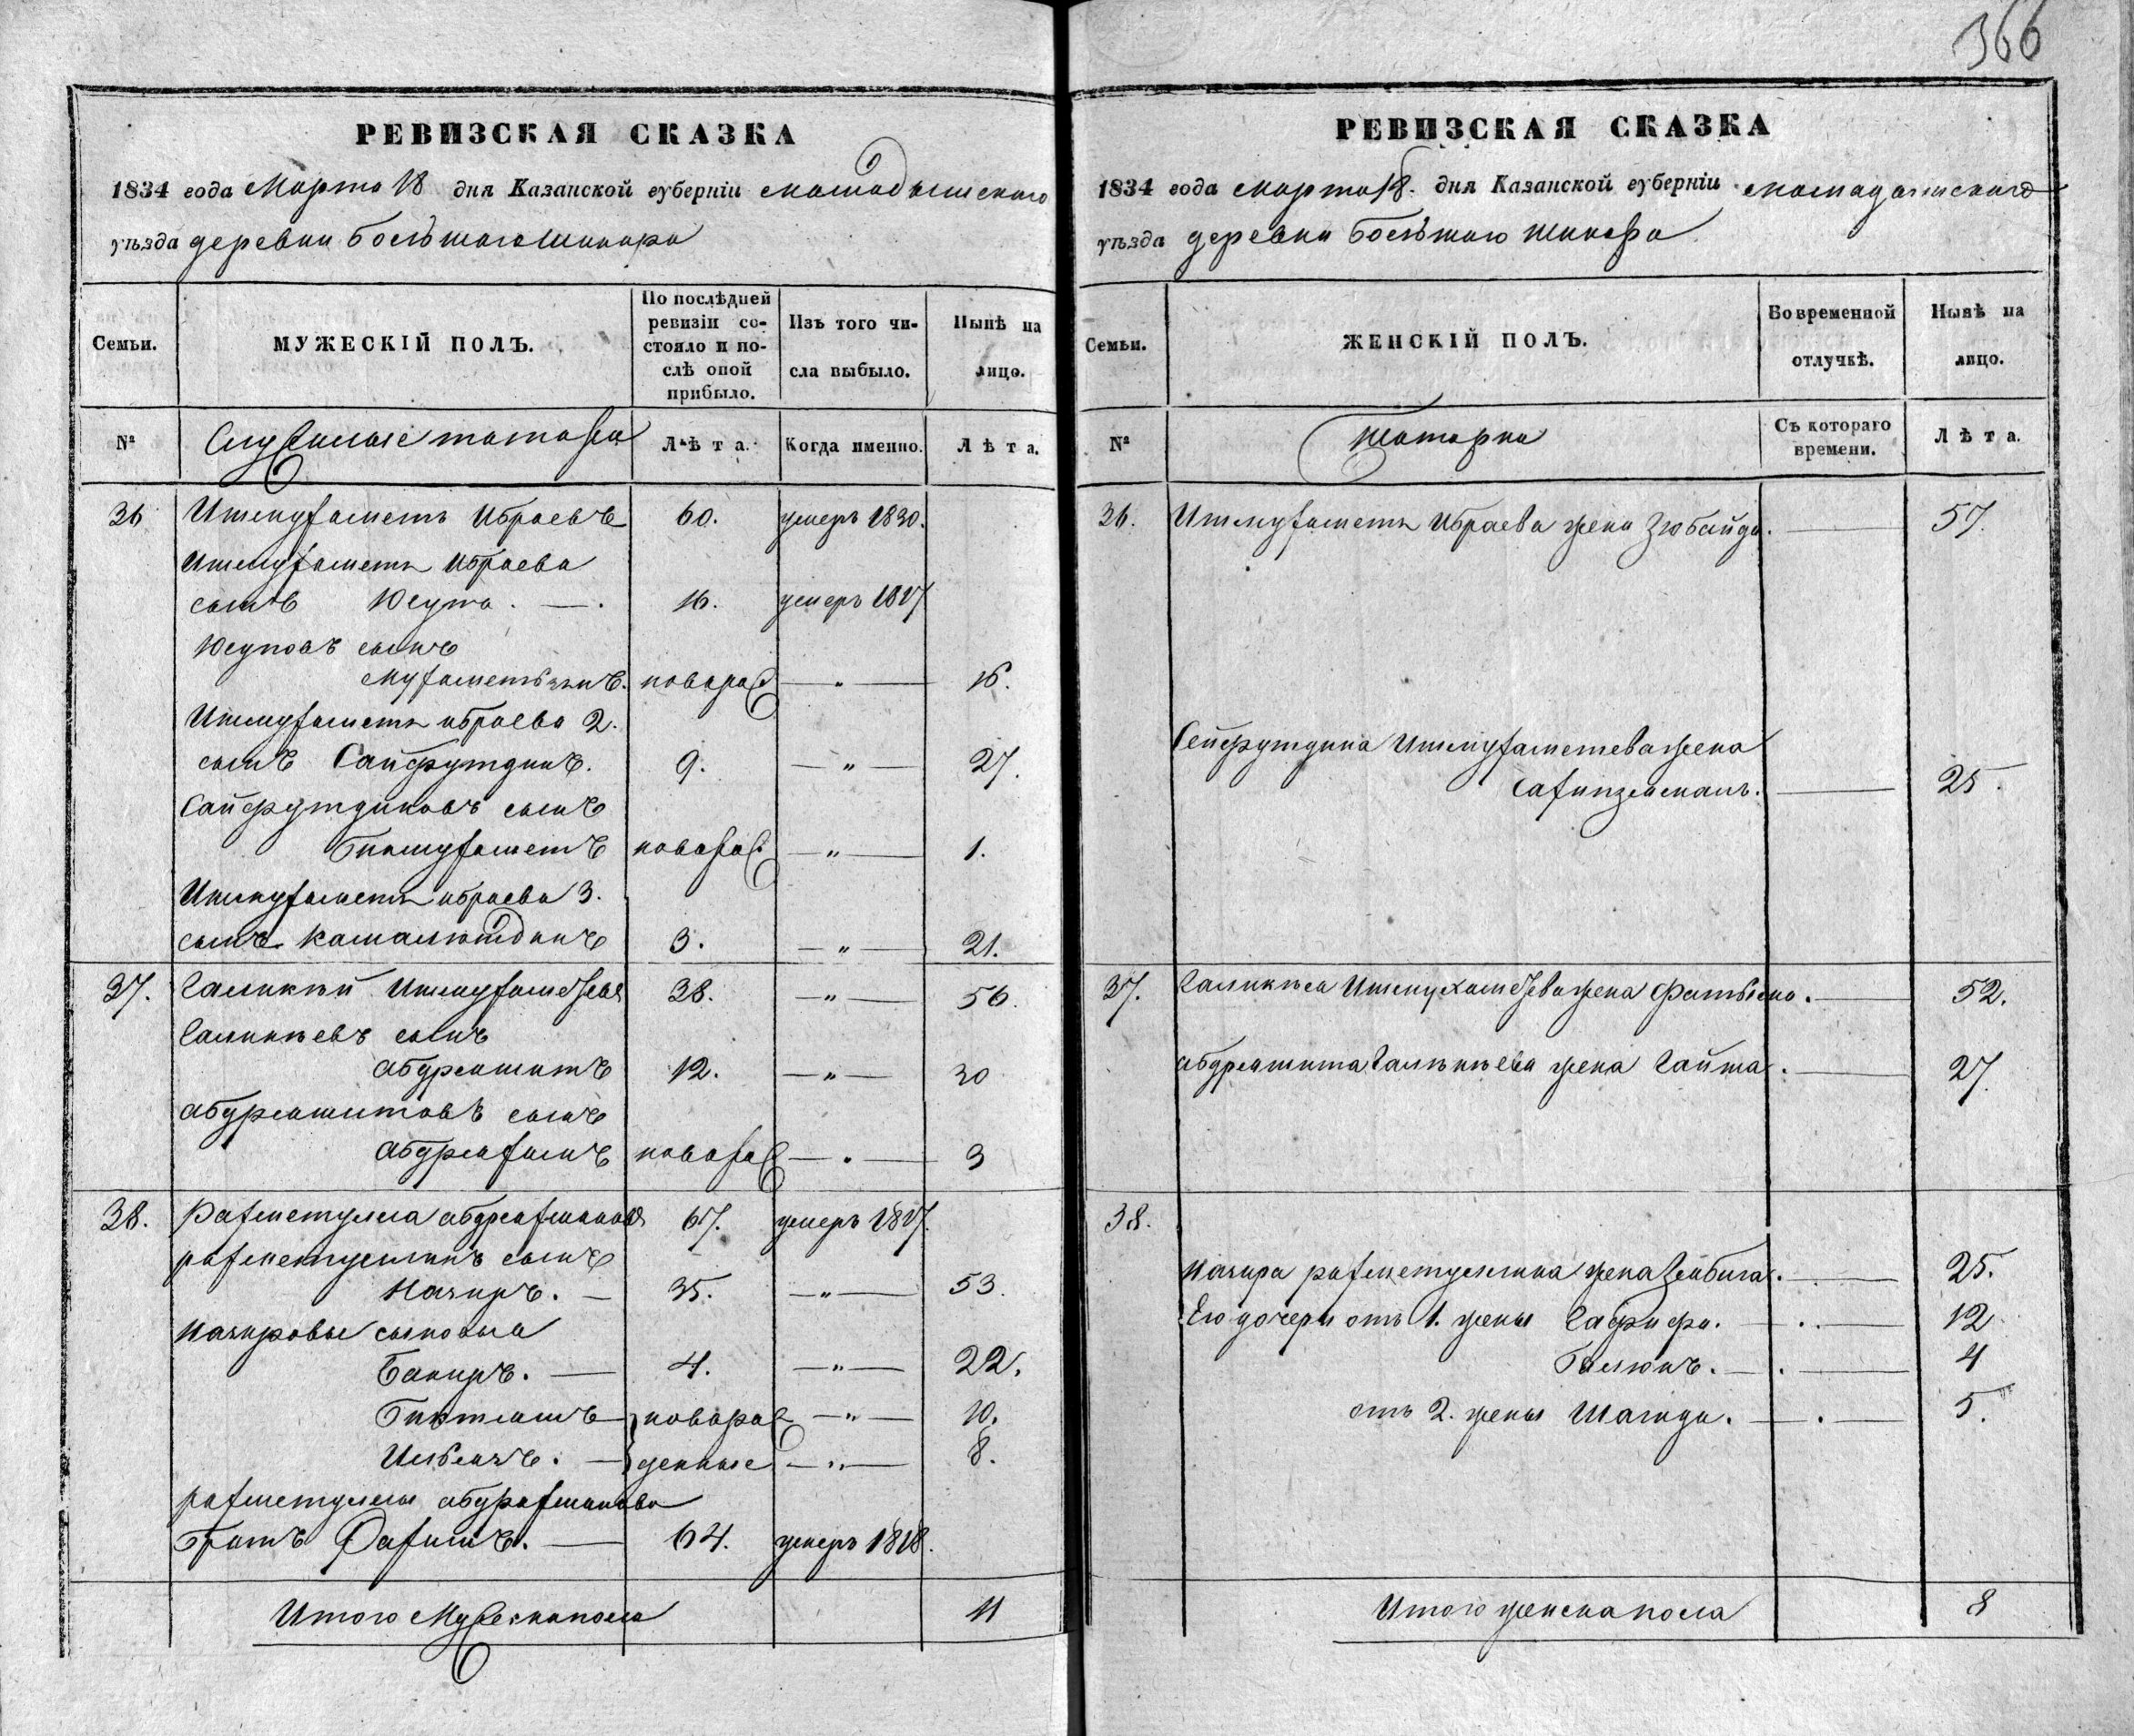 366
РЕВИЗСКАЯ СКАЗКА
1834 года Марта 18 дня Казанской губерніи Мамадышского
уѣзда деревни большаго Шинара
Семьи. МУЖЕСКІЙ ПОЛЪ. По послѣдней ревизіи состояло и послѣ оной прибыло. Изъ того числа выбыло. Нынѣ на лицо.
№ Служилые татара Лѣта. Когда именно. Лѣта.
36 Ишмухаметъ Ибраевъ 60. умеръ 1830.
Ишмухаметя Ибраева
сынъ Юсупа. 16. умеръ 1827
Юсуповъ сынъ
Мухаметзянъ. новорож — „ — 16.
Ишмухаметя ибраева 2.
сынъ Сайфутдинъ. 9. — „ — 27.
Сайфутдиновъ сынъ
Бикмухаметъ новорож — „ — 1.
Ишмухаметя ибраева 3.
сынъ Камалютдинъ 3. — „ — 21.
37. Галикѣй Ишмухаметевъ 38. — „ — 56.
Галикѣевъ сынъ
абдряшитъ 12. — „ — 30
абдряшитовъ сынъ
абдряхимъ новорож — „ — 3
38. Рахметулла абдряхмановъ 67. умеръ 1827.
рахметуллинъ сынъ
Начиръ. — 35. — „ — 53.
Начировы сыновья
Бакиръ. — 4. — „ — 22.
Бикташъ новорож — „ — 10.
Ильясъ. — денные — „ — 8.
рахметуллы абдрахманова
братъ Рахимъ. — 64. умеръ 1818.
Итого Мужеска пола 11
РЕВИЗСКАЯ СКАЗКА
1834 года марта 18. дня Казанской губерніи мамадышскаго
уѣзда деревни большаго Шинара
Семьи. ЖЕНСКІЙ ПОЛЪ. Во временной отлучкѣ. Нынѣ на лицо.
№ Татарки Съ котораго времени. Лѣта.
36. Ишмухаметя Ибраева жена Зюбайда. — 57.
Сейфутдина Ишмухаметева жена
— 25.
37. Галикѣя Ишмухаметева жена — 52.
абдряшита Галикѣева жена Гайша. — 27.
38.
Начира рахметуллина жена Зямбига. — 25.
Его дочери отъ 1. жены Гафифа. — 12
— 4
отъ 2. жены Шагида. — 5.
Итого женска пола 8